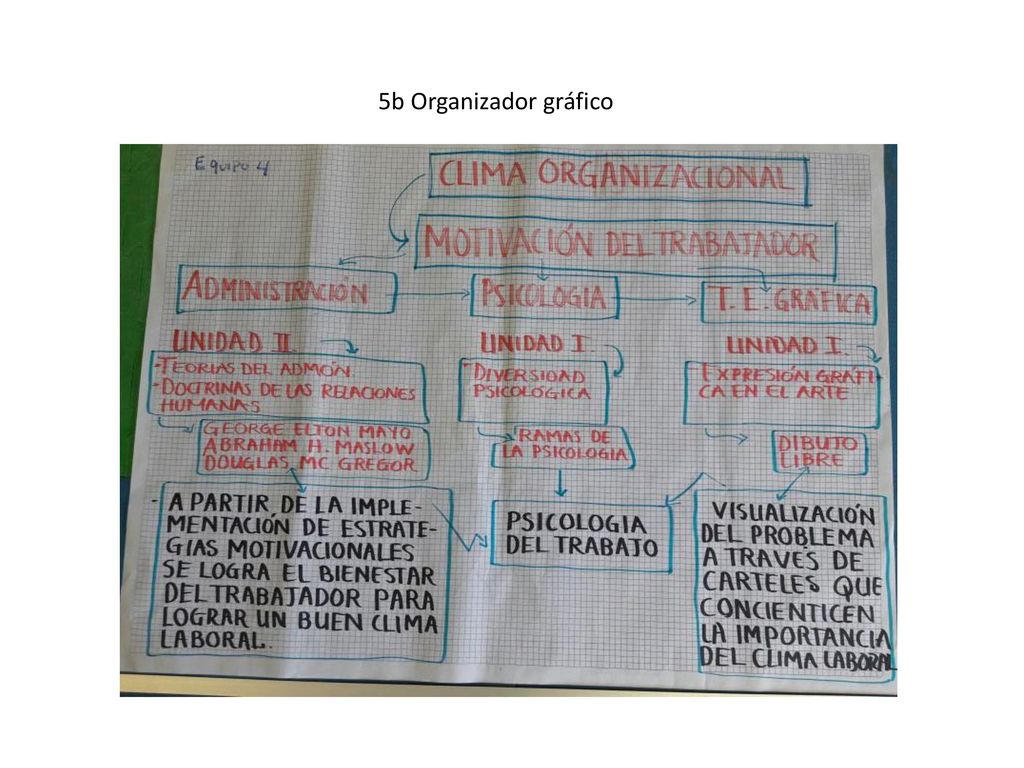 5b Organizador gráfico
Equipo 4
CLIMA ORGANIZACIONAL
MOTIVACIÓN DEL TRABAJADOR
ADMINISTRACIÓN
PSICOLOGIA
T. E. GRÁFICA
UNIDAD II.
-TEORIAS DEL ADMÓN.
-DOCTRINAS DE LAS RELACIONES
HUMANAS
GEORGE ELTON MAYO
ABRAHAM H. MASLOW
DOUGLAS MC GREGOR
- A PARTIR DE LA IMPLE-
MENTACIÓN DE ESTRATE-
GIAS MOTIVACIONALES
SE LOGRA EL BIENESTAR
DEL TRABAJADOR PARA
LOGRAR UN BUEN CLIMA
LABORAL.
UNIDAD I.
-DIVERSIDAD
PSICOLÓGICA
RAMAS DE
LA PSICOLOGIA
PSICOLOGIA
DEL TRABAJO
UNIDAD I.
-EXPRESIÓN GRÁFI-
CA EN EL ARTE
DIBUJO
LIBRE
VISUALIZACIÓN
DEL PROBLEMA
A TRAVÉS DE
CARTELES QUE
CONCIENTICEN
LA IMPORTANCIA
DEL CLIMA LABORAL